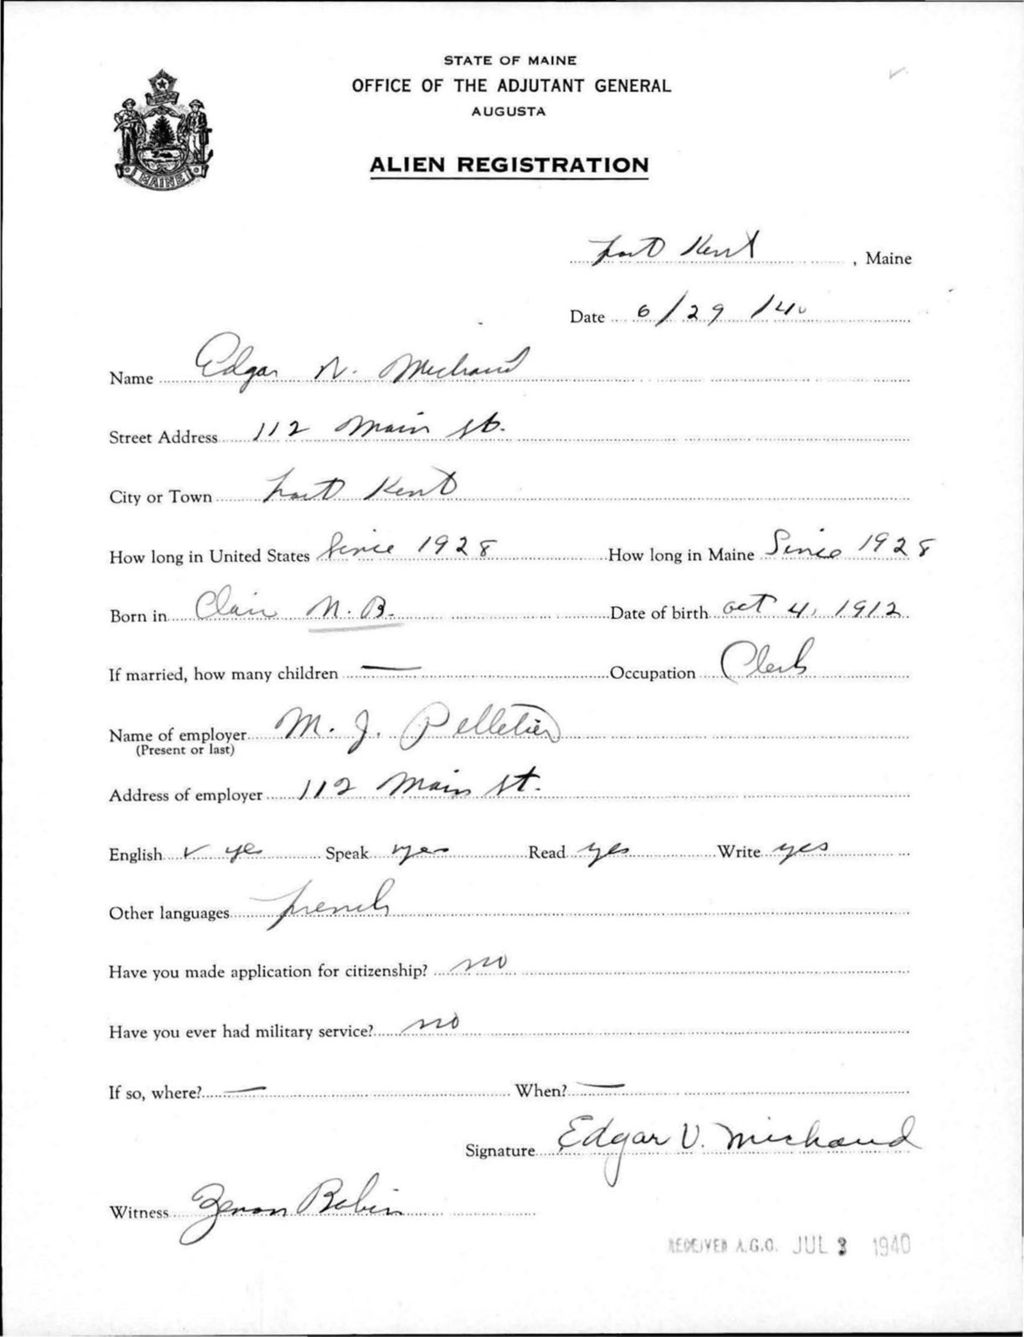 STATE OF MAINE
OFFICE OF THE ADJUTANT GENERAL
AUGUSTA
ALIEN REGISTRATION
MAINE
Fort Kent, Maine
Date 6/29/40
Name Edgar V. Michaud
Street Address 112 Main St.
City or Town Fort Kent
How long in United States Since 1928 How long in Maine Since 1928
Born in Clair N.B. Date of birth Oct 4, 1912
If married, how many children — Occupation Clerk
Name of employer M. J. Pelletier
(Present or last)
Address of employer 112 Main St.
English ✓ yes Speak yes Read yes Write yes
Other languages French
Have you made application for citizenship? no
Have you ever had military service? no
If so, where? — When? —
Signature Edgar V. Michaud
Witness Zenon Bobin
RECEIVED A.G.O. JUL 3 1940